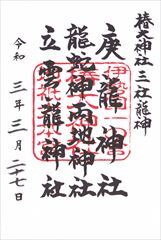 椿大神社 三社龍神
庚龍神社
龍蛇神両地神社
立雲龍神社
令和 三年三月二十七日